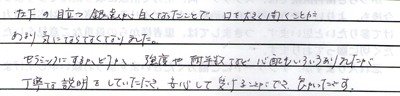 左下の目立つ銀歯が白くなったことで、口を大きく開くことが
あまり気にならなくなりました。
セラミックにするかどうか、強度や耐年数など心配もいろいろありましたが
丁寧な説明をしていただき、安心して受けることができ良かったです。